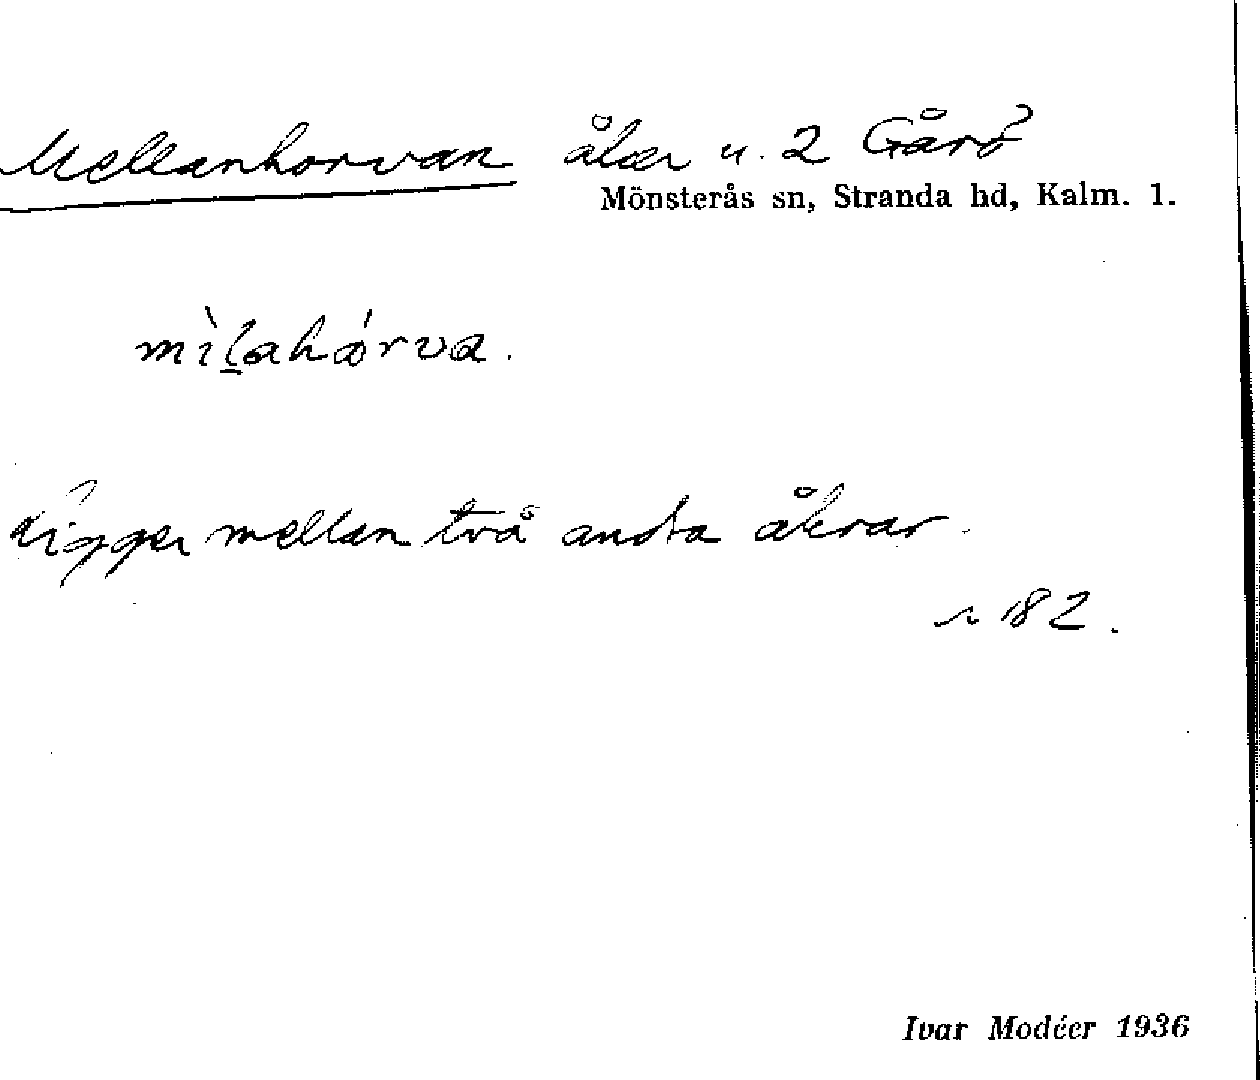 Mellanhorvan åker u. 2 Gårö
Mönsterås sn, Stranda hd, Kalm. l.
mìlahárva.
Ligger mellan två andra åkrar.
r 182.
Ivar Modéer 1936